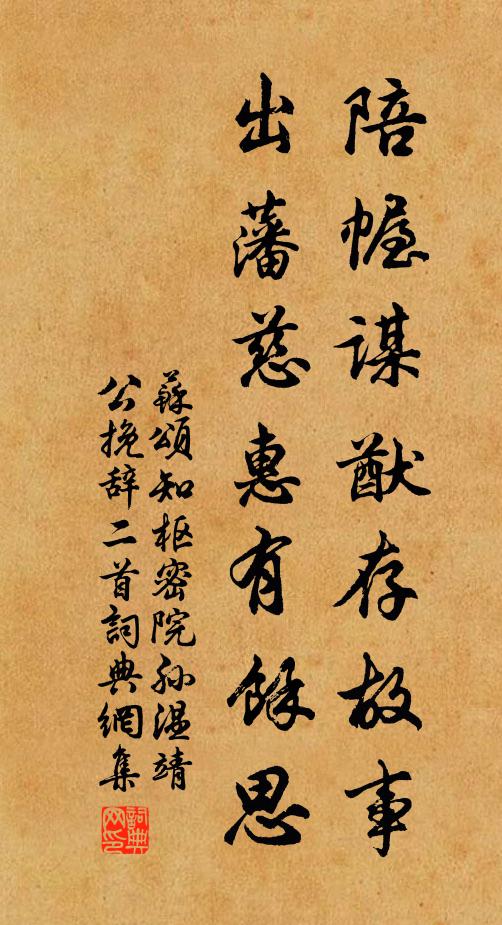 陪幄谋猷存故事
出藩慈惠有馀思
蘇頌知枢密院孙温靖
公挽辞二首詞典網集
詞典网印